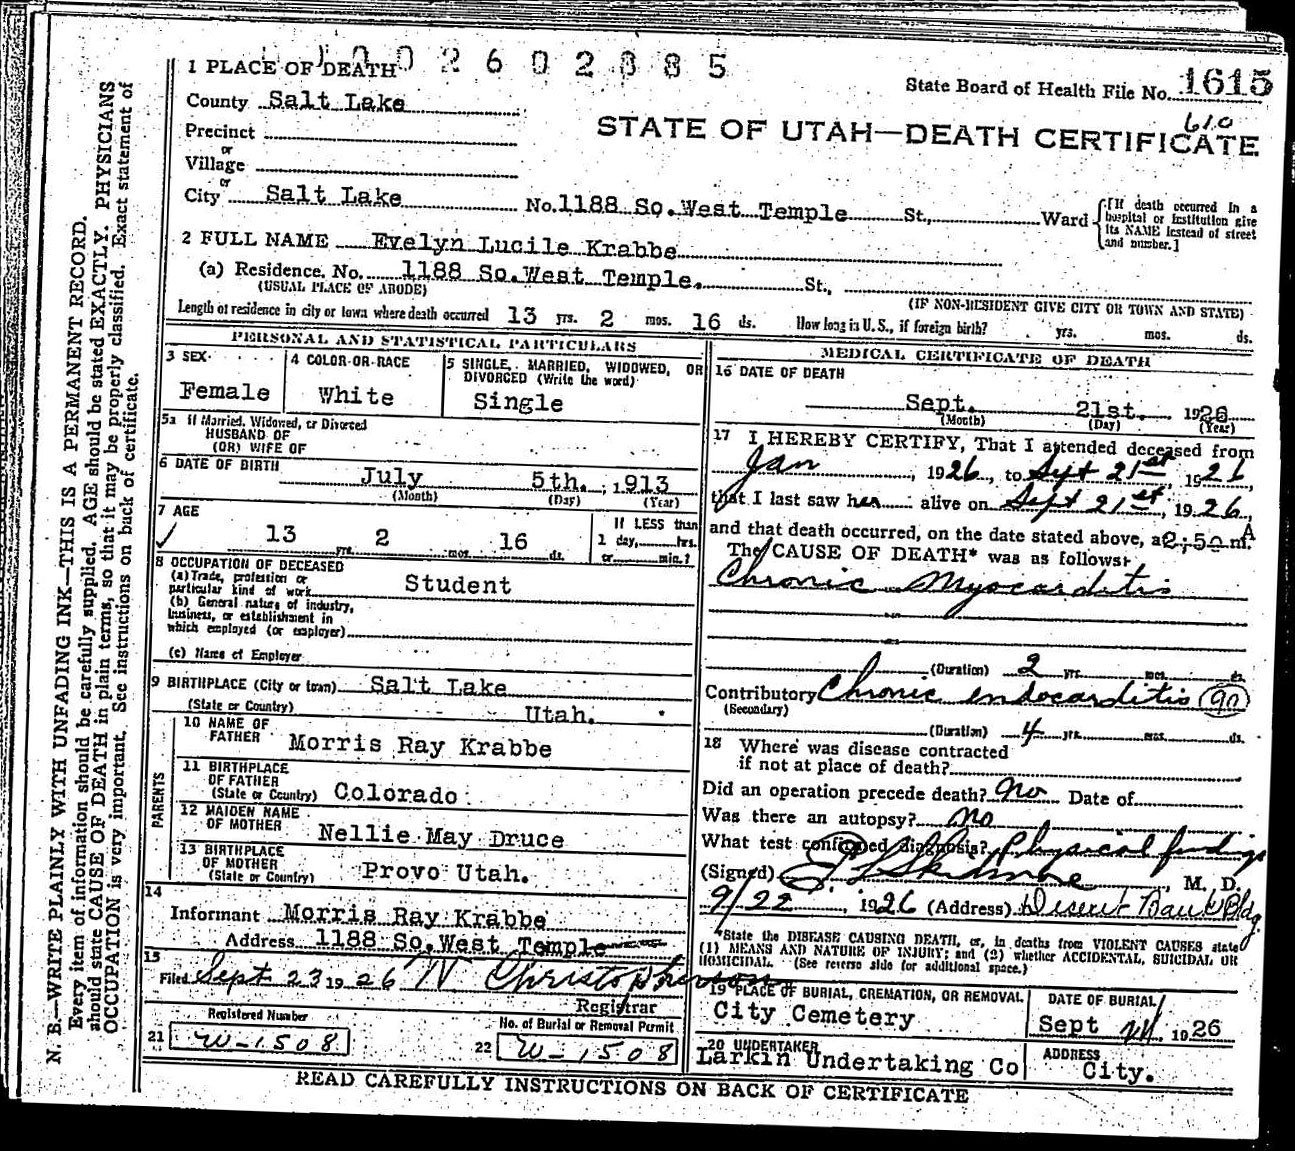 N. B.—WRITE PLAINLY WITH UNFADING INK—THIS IS A PERMANENT RECORD.
Every item of information should be carefully supplied. AGE should be stated EXACTLY. PHYSICIANS
should state CAUSE OF DEATH in plain terms, so that it may be properly classified. Exact statement of
OCCUPATION is very important. See instructions on back of certificate.
1 PLACE OF DEATH
State Board of Health File No. 1615
610
County Salt Lake
STATE OF UTAH—DEATH CERTIFICATE
Precinct
or
Village
or
City Salt Lake No. 1188 So. West Temple St., Ward
[If death occurred in a
hospital or institution give
its NAME instead of street
and number.]
2 FULL NAME Evelyn Lucile Krabbe
(a) Residence. No. 1188 So. West Temple. St.,
(USUAL PLACE OF ABODE) (IF NON-RESIDENT GIVE CITY OR TOWN AND STATE)
Length of residence in city or town where death occurred 13 yrs. 2 mos. 16 ds. How long in U. S., if foreign birth? yrs. mos. ds.
PERSONAL AND STATISTICAL PARTICULARS
3 SEX
Female
4 COLOR OR RACE
White
5 SINGLE, MARRIED, WIDOWED, OR
DIVORCED (Write the word)
Single
5a If Married, Widowed, or Divorced
HUSBAND OF
(OR) WIFE OF
6 DATE OF BIRTH
July 5th. , 1913
(Month) (Day) (Year)
7 AGE
✓ 13 yrs. 2 mos. 16 ds.
If LESS than
1 day, hrs.
or min.?
8 OCCUPATION OF DECEASED
(a) Trade, profession or
particular kind of work Student
(b) General nature of industry,
business, or establishment in
which employed (or employer)
(c) Name of Employer
9 BIRTHPLACE (City or town) Salt Lake
(State or Country) Utah.
PARENTS
10 NAME OF
FATHER Morris Ray Krabbe
11 BIRTHPLACE
OF FATHER
(State or Country) Colorado
12 MAIDEN NAME
OF MOTHER Nellie May Druce
13 BIRTHPLACE
OF MOTHER
(State or Country) Provo Utah.
14
Informant Morris Ray Krabbe
Address 1188 So. West Temple
15
Filed Sept 23 1926
Registrar
Registered Number
21 W-1508
No. of Burial or Removal Permit
22 W-1508
MEDICAL CERTIFICATE OF DEATH
16 DATE OF DEATH
Sept. 21st. 1926
(Month) (Day) (Year)
17 I HEREBY CERTIFY, That I attended deceased from
Jan , 1926, to Sept 21st, 1926,
that I last saw her alive on Sept 21st, 1926,
and that death occurred, on the date stated above, at 2:50 A m.
The CAUSE OF DEATH* was as follows:
Chronic Myocarditis
(Duration) 2 yrs. mos. ds.
Contributory Chronic endocarditis 90
(Secondary)
(Duration) 4 yrs. mos. ds.
18 Where was disease contracted
if not at place of death?
Did an operation precede death? No Date of
Was there an autopsy? No
What test confirmed diagnosis? Physical findings
(Signed) Skidmore , M. D.
9/22 , 1926 (Address) Deseret Bank Bldg
*State the DISEASE CAUSING DEATH, or, in deaths from VIOLENT CAUSES state
(1) MEANS AND NATURE OF INJURY; and (2) whether ACCIDENTAL, SUICIDAL OR
HOMICIDAL. (See reverse side for additional space.)
19 PLACE OF BURIAL, CREMATION, OR REMOVAL
City Cemetery
DATE OF BURIAL
Sept 1926
20 UNDERTAKER
Larkin Undertaking Co
ADDRESS
City.
READ CAREFULLY INSTRUCTIONS ON BACK OF CERTIFICATE